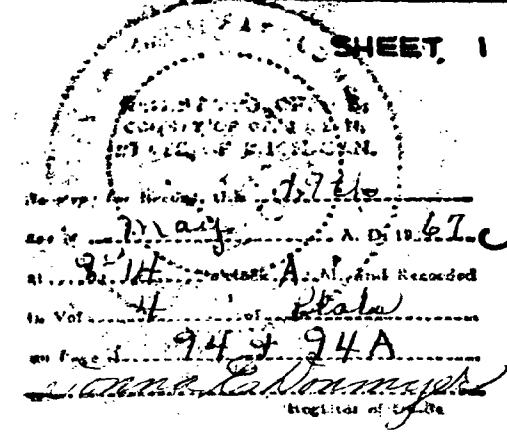 SHEET 1
REGISTER'S OFFICE
COUNTY OF
STATE OF MICHIGAN.
Received for Record, this 17th
day of May A. D. 1967
at 8:14 o'clock A. M. and Recorded
in Vol. 4 of Plats
on Page s 94 & 94A
Register of Deeds